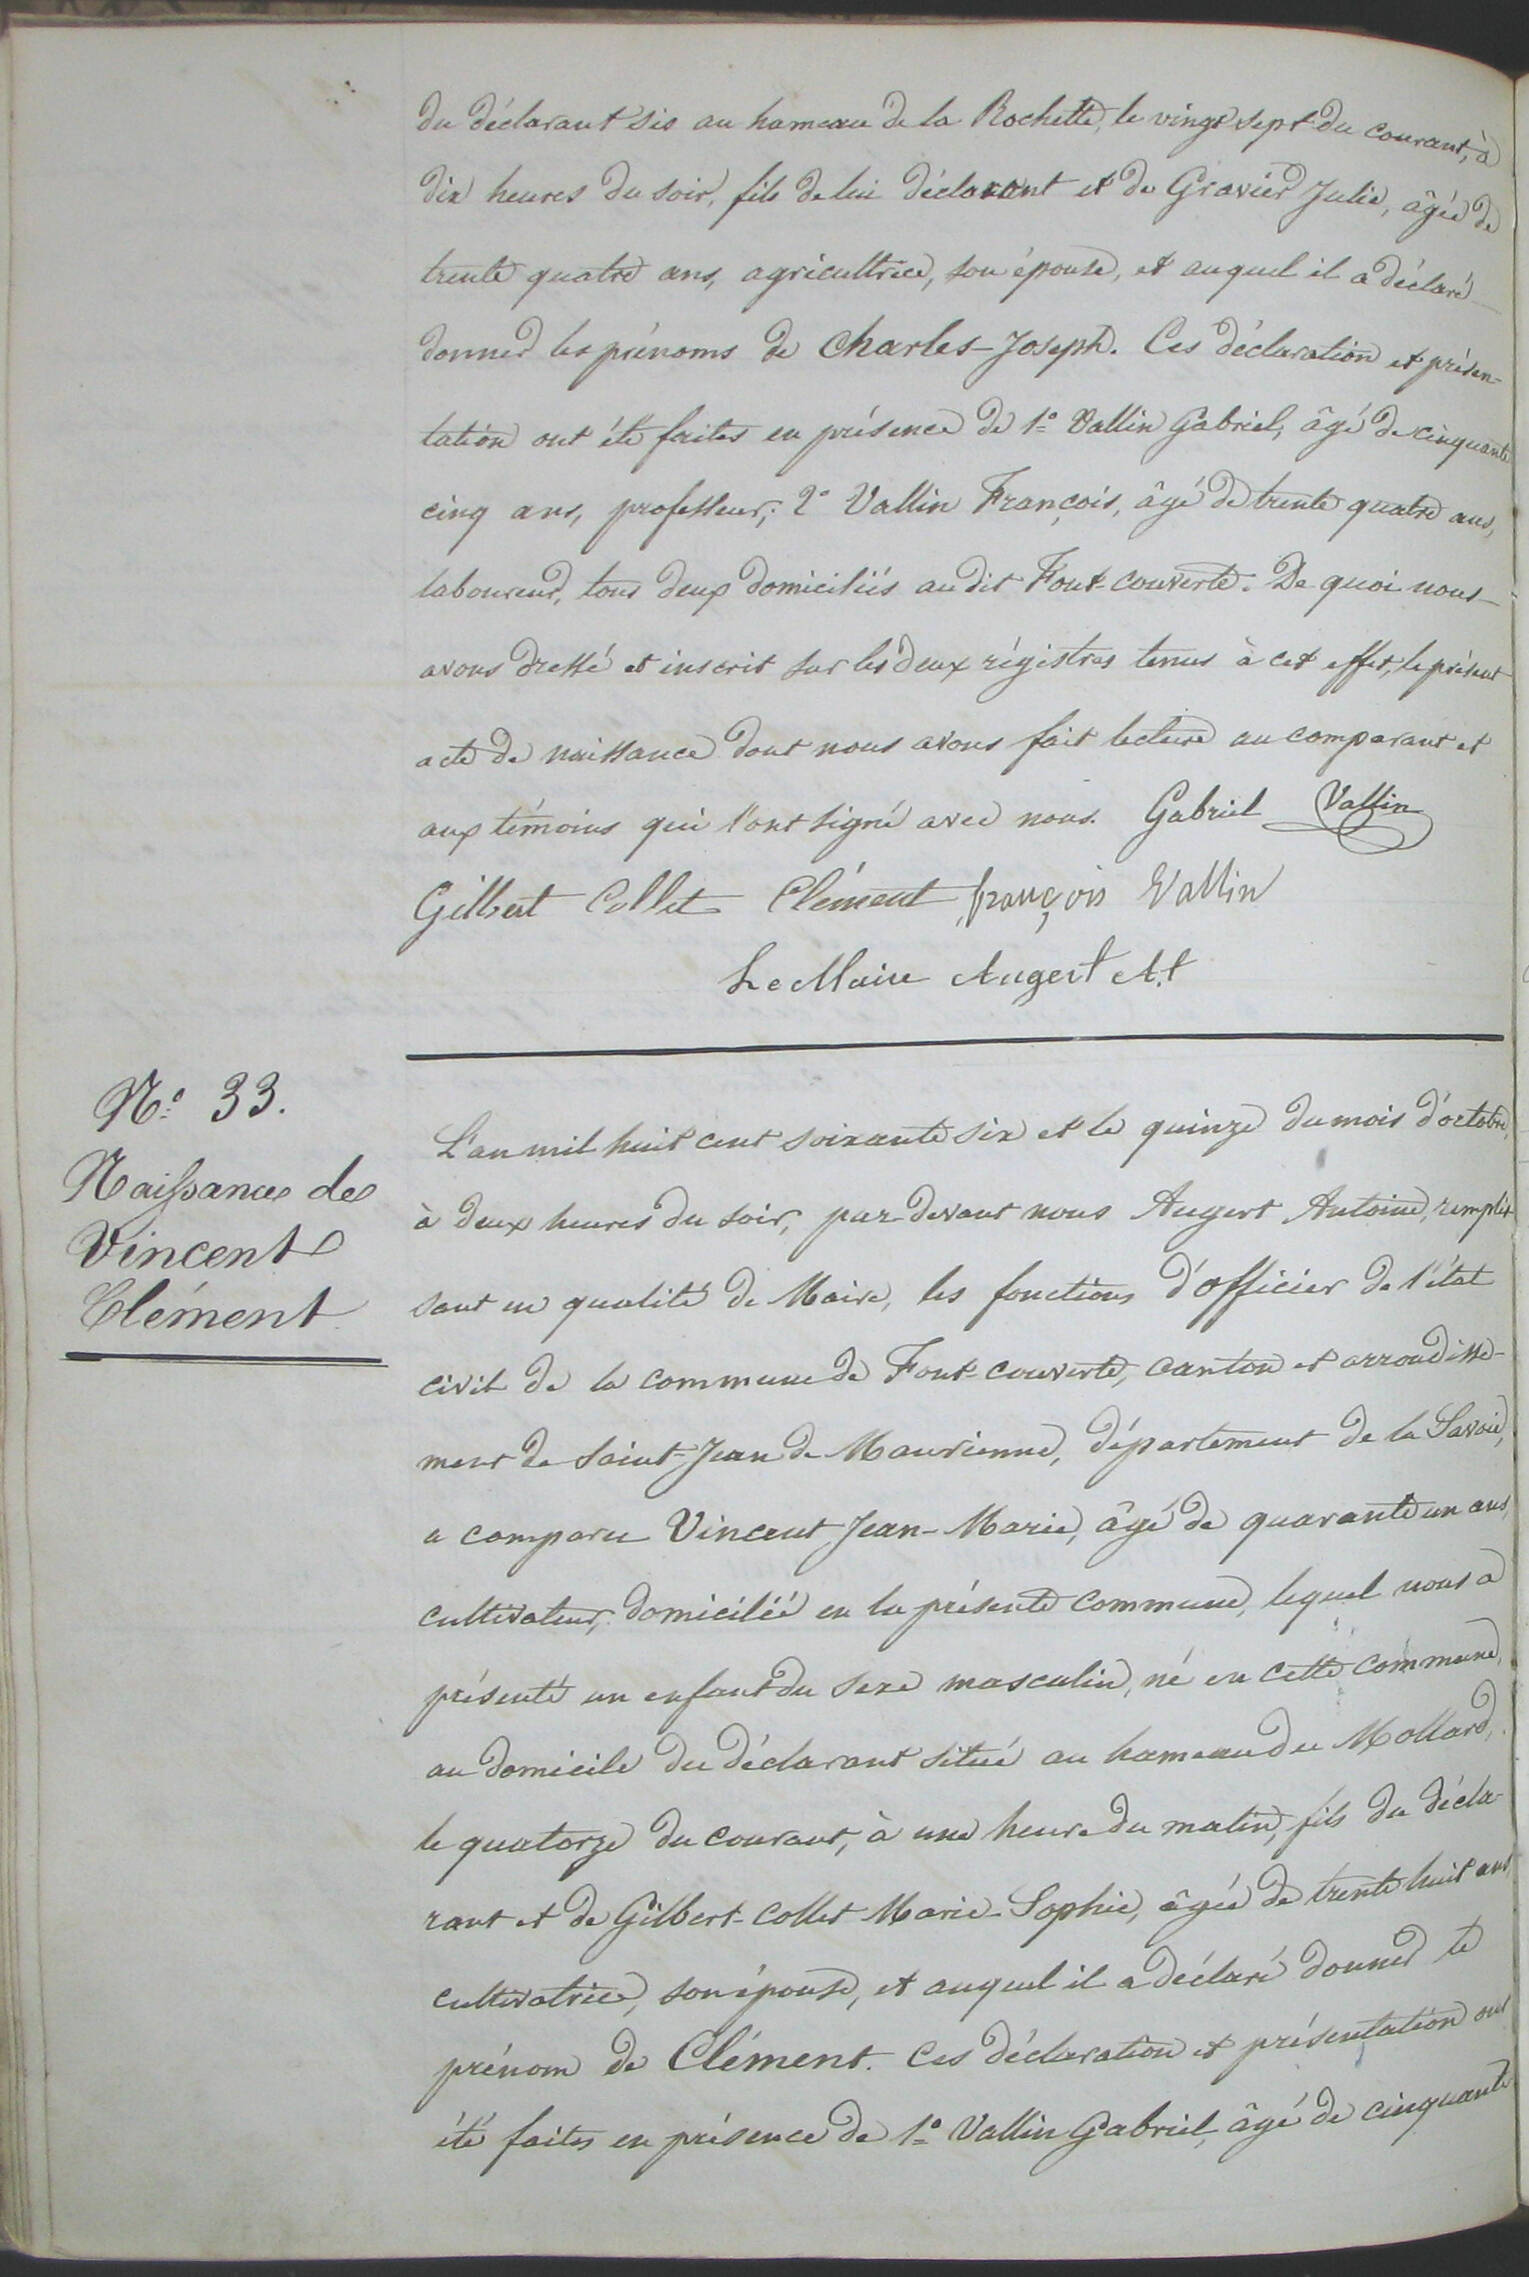 du déclarant sis au hameau de la Rochette, le vingt sept du courant, à
dix heures du soir, fils de lui déclarant et de Gravier Julie, âgée de
trente quatre ans, agricultrice, son épouse, et auquel il a déclaré
donner les prénoms de Charles-Joseph. Ces déclaration et présen-
tation ont été faites en présence de 1° Vallin Gabriel, âgé de cinquante
cinq ans, professeur; 2° Vallin François, âgé de trente quatre ans,
laboureur, tous deux domiciliés audit Font-couverte. De quoi nous
avons dressé et inscrit sur les deux régistres tenus à cet effet, le présent
acte de naissance dont nous avons fait lecture au comparant et
aux témoins qui l'ont signé avec nous. Gabriel Vallin
Gilbert Collet Clément françois Vallin
Le Maire Augert At
N° 33.
Naissance de
Vincent
Clément
L'an mil huit cent soixante six et le quinze du mois d'octobre,
à deux heures du soir, par devant nous Augert Antoine, remplis-
sant en qualité de Maire, les fonctions d'officier de l'état
civil de la commune de Font-couverte, canton et arrondisse-
ment de Saint-Jean de Maurienne, département de la Savoie,
a comparu Vincent Jean-Marie, âgé de quarante un ans,
cultivateur, domicilié en la présente commune, lequel nous a
présenté un enfant du sexe masculin, né en cette commune,
au domicile du déclarant situé au hameau du Mollard,
le quatorze du courant, à une heure du matin, fils du décla-
rant et de Gilbert-Collet Marie-Sophie, âgée de trente huit ans,
cultivatrice, son épouse, et auquel il a déclaré donner le
prénom de Clément. Ces déclaration et présentation ont
été faites en présence de 1° Vallin Gabriel, âgé de cinquante